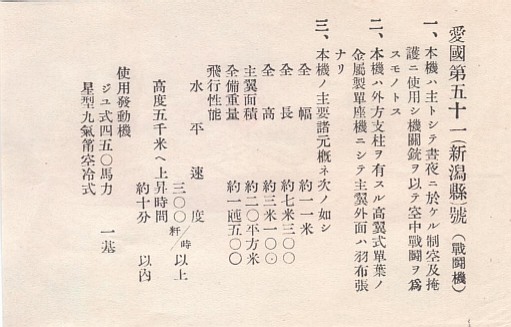 愛國第五十一(新潟縣)號(戰鬪機)
一、本機ハ主トシテ晝夜ニ於ケル制空及掩
護ニ使用シ機關銃ヲ以テ空中戰鬪ヲ爲
スモノトス
二、本機ハ外方支柱ヲ有スル高翼式單葉ノ
金屬製單座機ニシテ主翼外面ハ羽布張
ナリ
三、本機ノ主要諸元概ネ次ノ如シ
全幅 約一一米
全長 約七米三〇〇
全高 約三米一〇〇
主翼面積 約二〇平方米
全備重量 約一瓲五〇〇
飛行性能
水平速度 三〇〇粁/時以上
高度五千米ヘ上昇時間
約十分以內
使用發動機
ジユ式四五〇馬力 一基
星型九氣筩空冷式